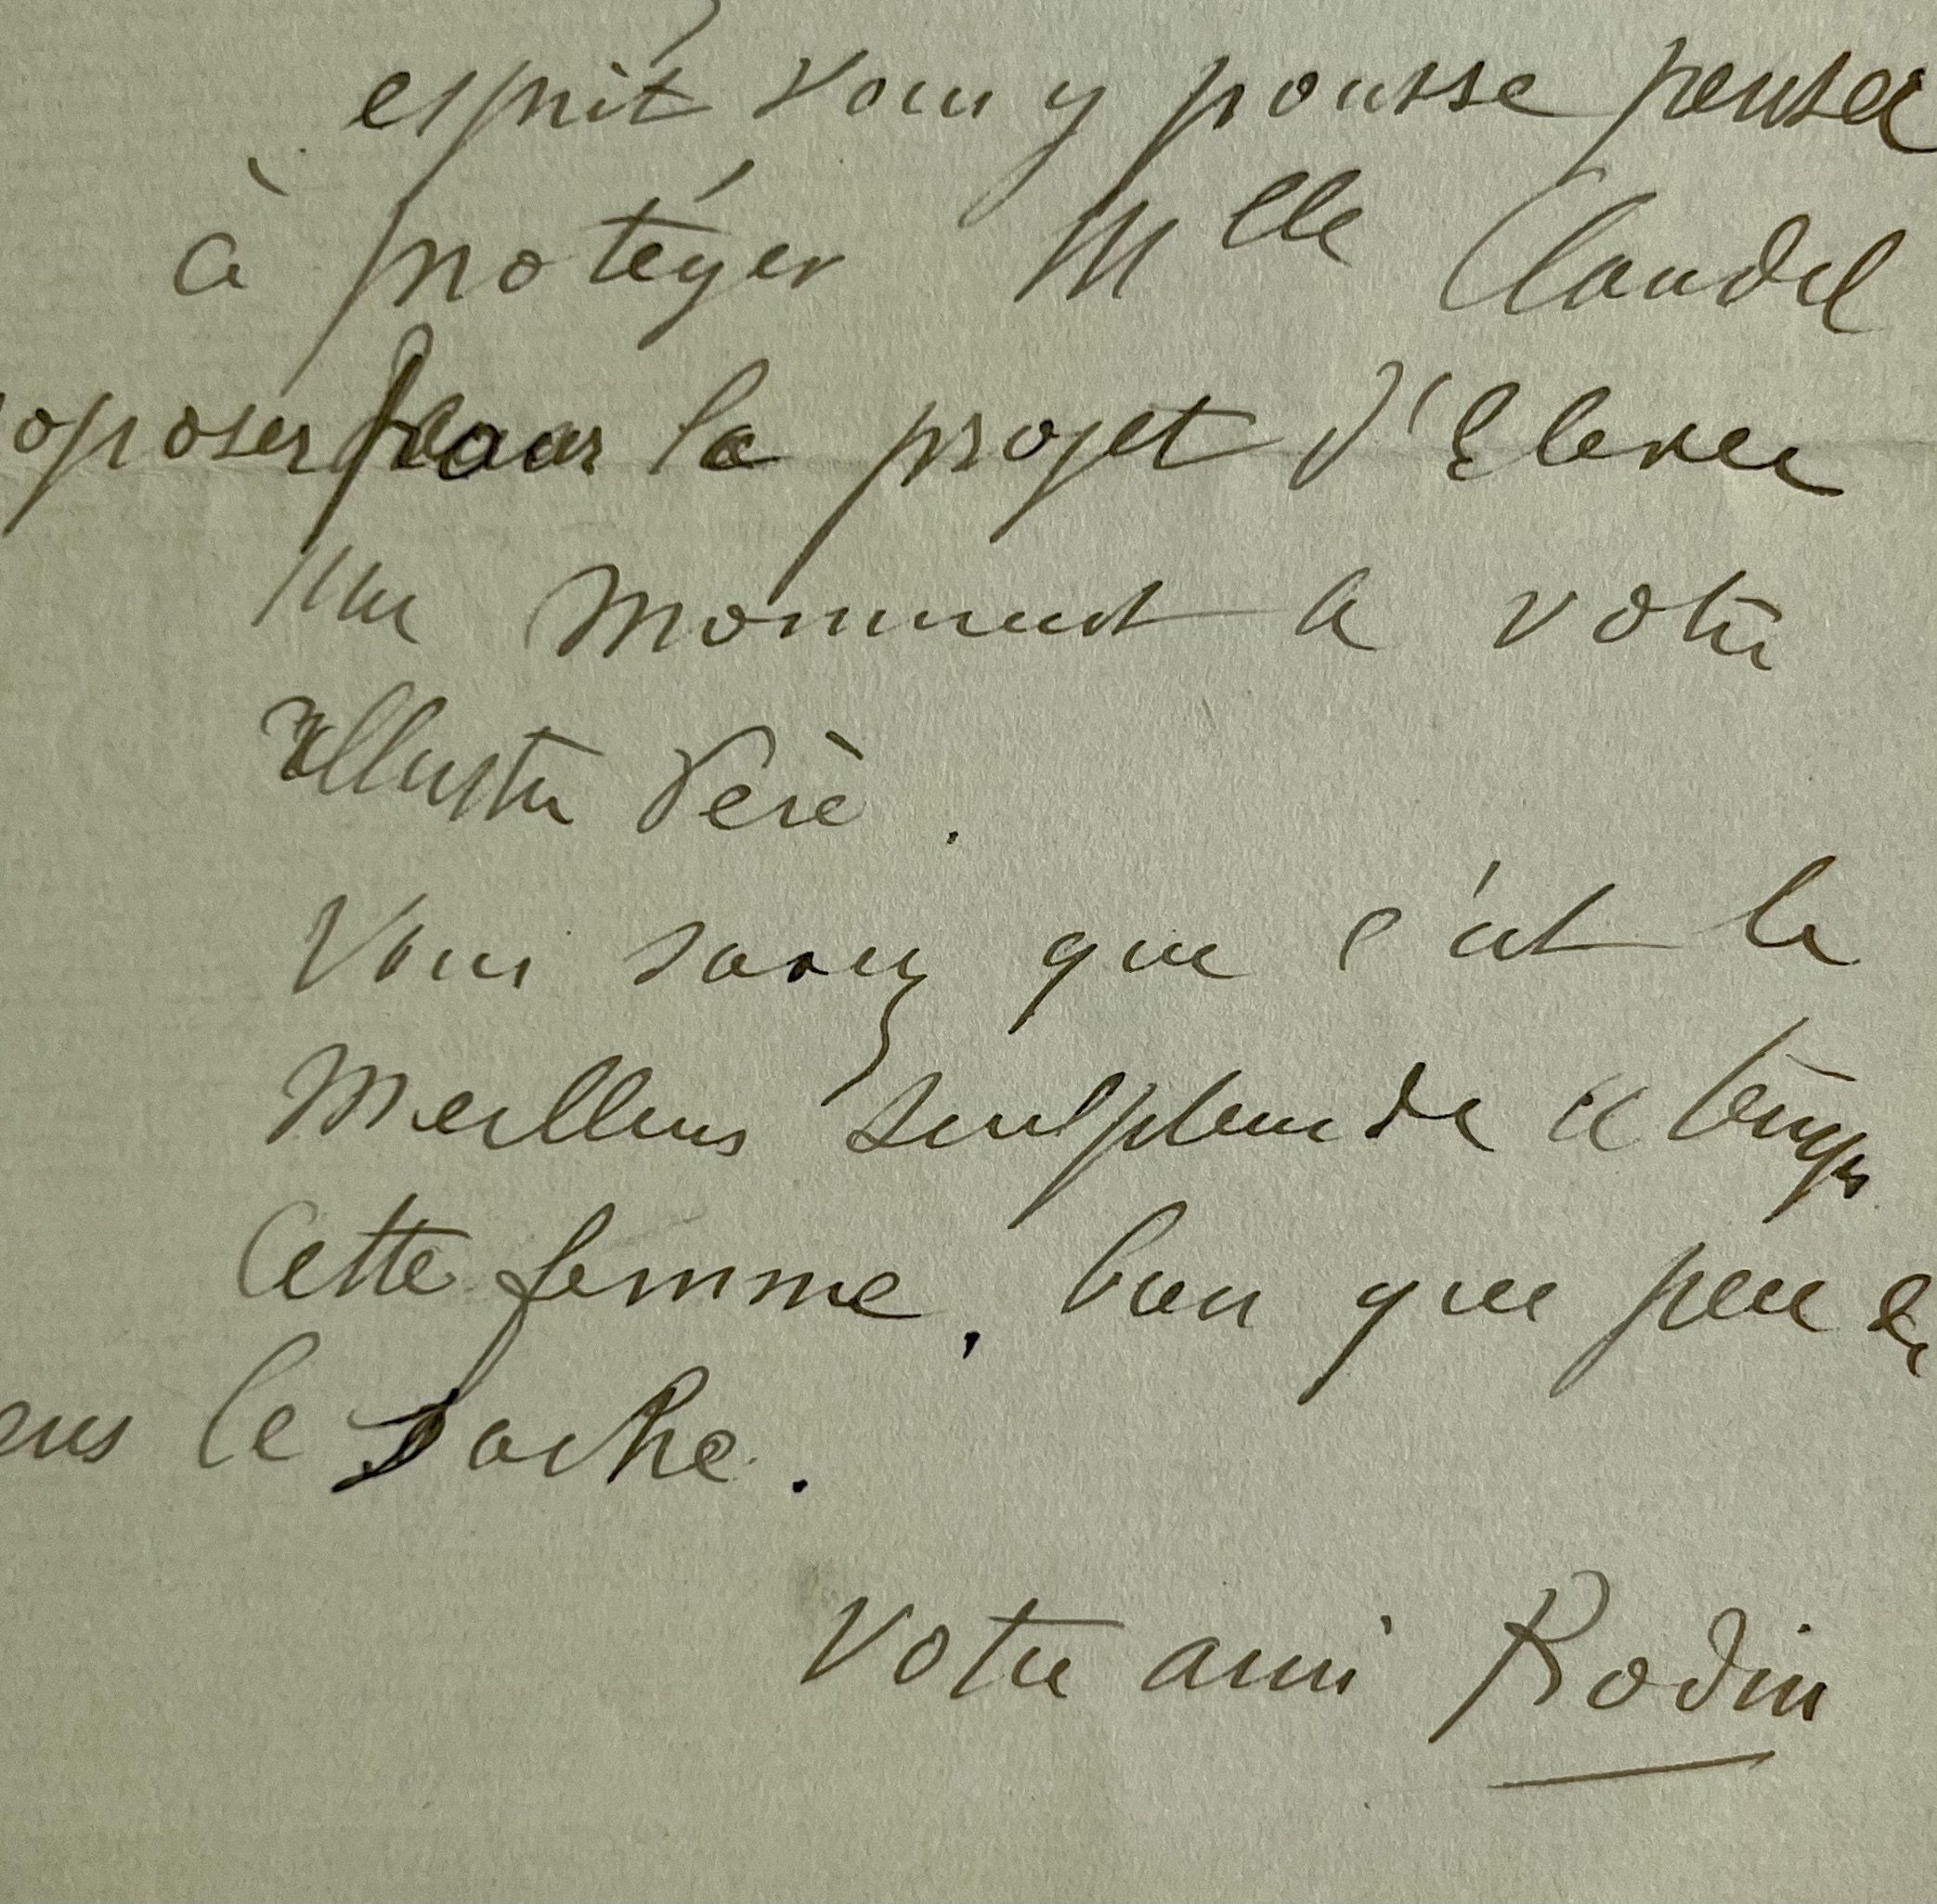 esprit vous y pousse penser
à protéger Mlle Claudel
oposer pour le projet d'Elever
un Monument a votre
illustre Père.
Vous savez que c'est le
Meilleurs Sculpteur de ce temps
Cette femme, bien que peu de
ens le sache.
Votre ami Rodin